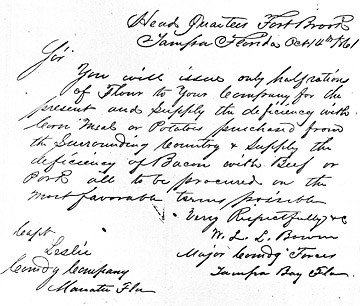 Head Quarters Fort Brook
Tampa Florida Oct 14th 1861
Sir
You will issue only half rations
of Flour to Your Company for the
present and Supply the deficiency with
Corn Meal or Potatoes purchased from
the Surrounding Country & Supply the
deficiency of Bacon with Beef or
Pork all to be procured on the
most favorable terms possible
Very Respectfully &c
W. L. L. Bowen
Major Comdg Forces
Tampa Bay Fla
Capt
Leslie
Comdg Company
Manatee Fla